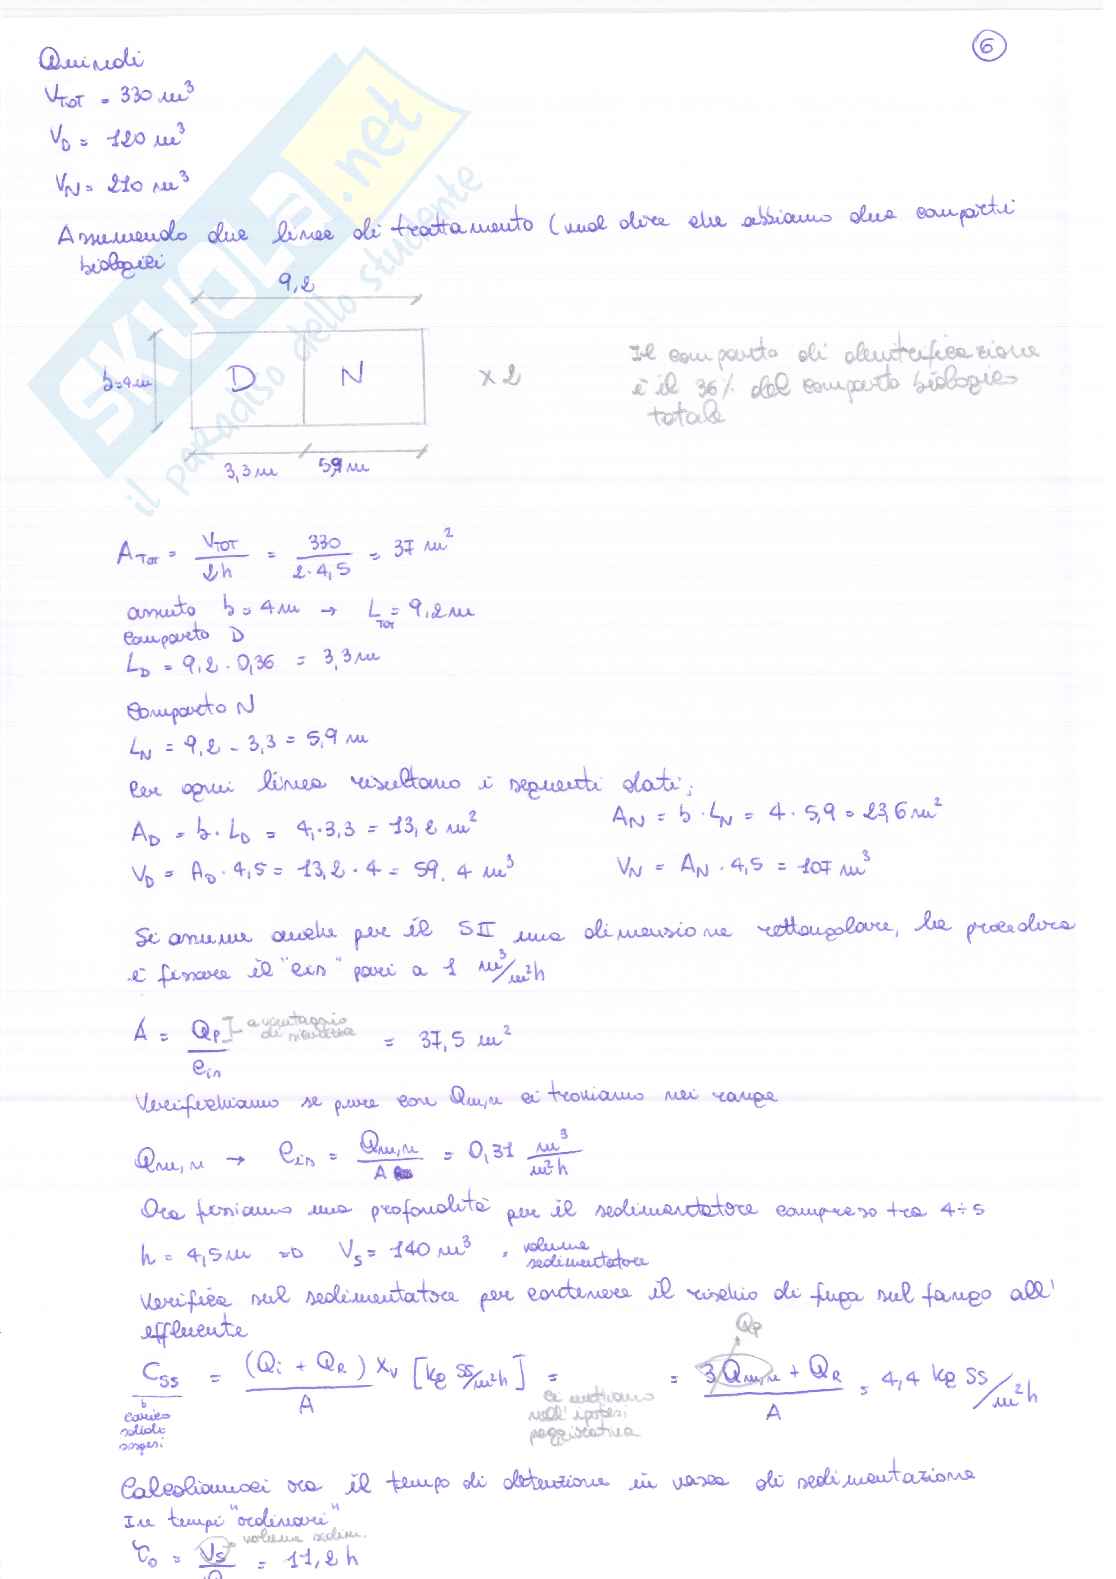 6
Quindi
V_TOT = 330 m³
V_D = 120 m³
V_N = 210 m³
Assumendo due linee di trattamento (vuol dire che abbiamo due comparti
biologici
9,2
b=4m
D
N
x 2
Il comparto di denitrificazione
è il 36% del comparto biologico
totale
3,3 m
5,9 m
A_TOT = V_TOT / 2h = 330 / 2·4,5 = 37 m²
assunto b = 4 m → L_TOT = 9,2 m
Comparto D
L_D = 9,2 · 0,36 = 3,3 m
Comparto N
L_N = 9,2 - 3,3 = 5,9 m
Per ogni linea risultano i seguenti dati;
A_D = b · L_D = 4,·3,3 = 13,2 m²
A_N = b · L_N = 4 · 5,9 = 23,6 m²
V_D = A_D · 4,5 = 13,2 · 4 = 59.4 m³
V_N = A_N · 4,5 = 107 m³
Si assume anche per il SII una dimensione rettangolare, la procedura
è fissare il "cis" pari a 1 m³/m²h
A = Q_P / C_is = 37,5 m²
a vantaggio
di sicurezza
Verifichiamo se pure con Qm,n ci troviamo nei range
Qm,n → C_is = Qm,n / A = 0,31 m³/m²h
Ora fissiamo una profondità per il sedimentatore compreso tra 4÷5
h = 4,5 m ⇒ V_S = 140 m³
volume
sedimentatore
Verifica sul sedimentatore per contenere il rischio di fuga sul fango all'
effluente
Q_P
C_SS = (Q_i + Q_R) X_V / A [kg SS/m²h] = = 3 Qm,n + Q_R / A = 4,4 kg SS/m²h
carico
solidi
sospesi
ci mettiamo
nell'ipotesi
peggiorativa
Calcoliamoci ora il tempo di detenzione in vasca di sedimentazione
In tempi "ordinari"
volume sedim.
τ_0 = V_S / Q = 11,2 h
SKUOLA.net
il paradiso dello studente